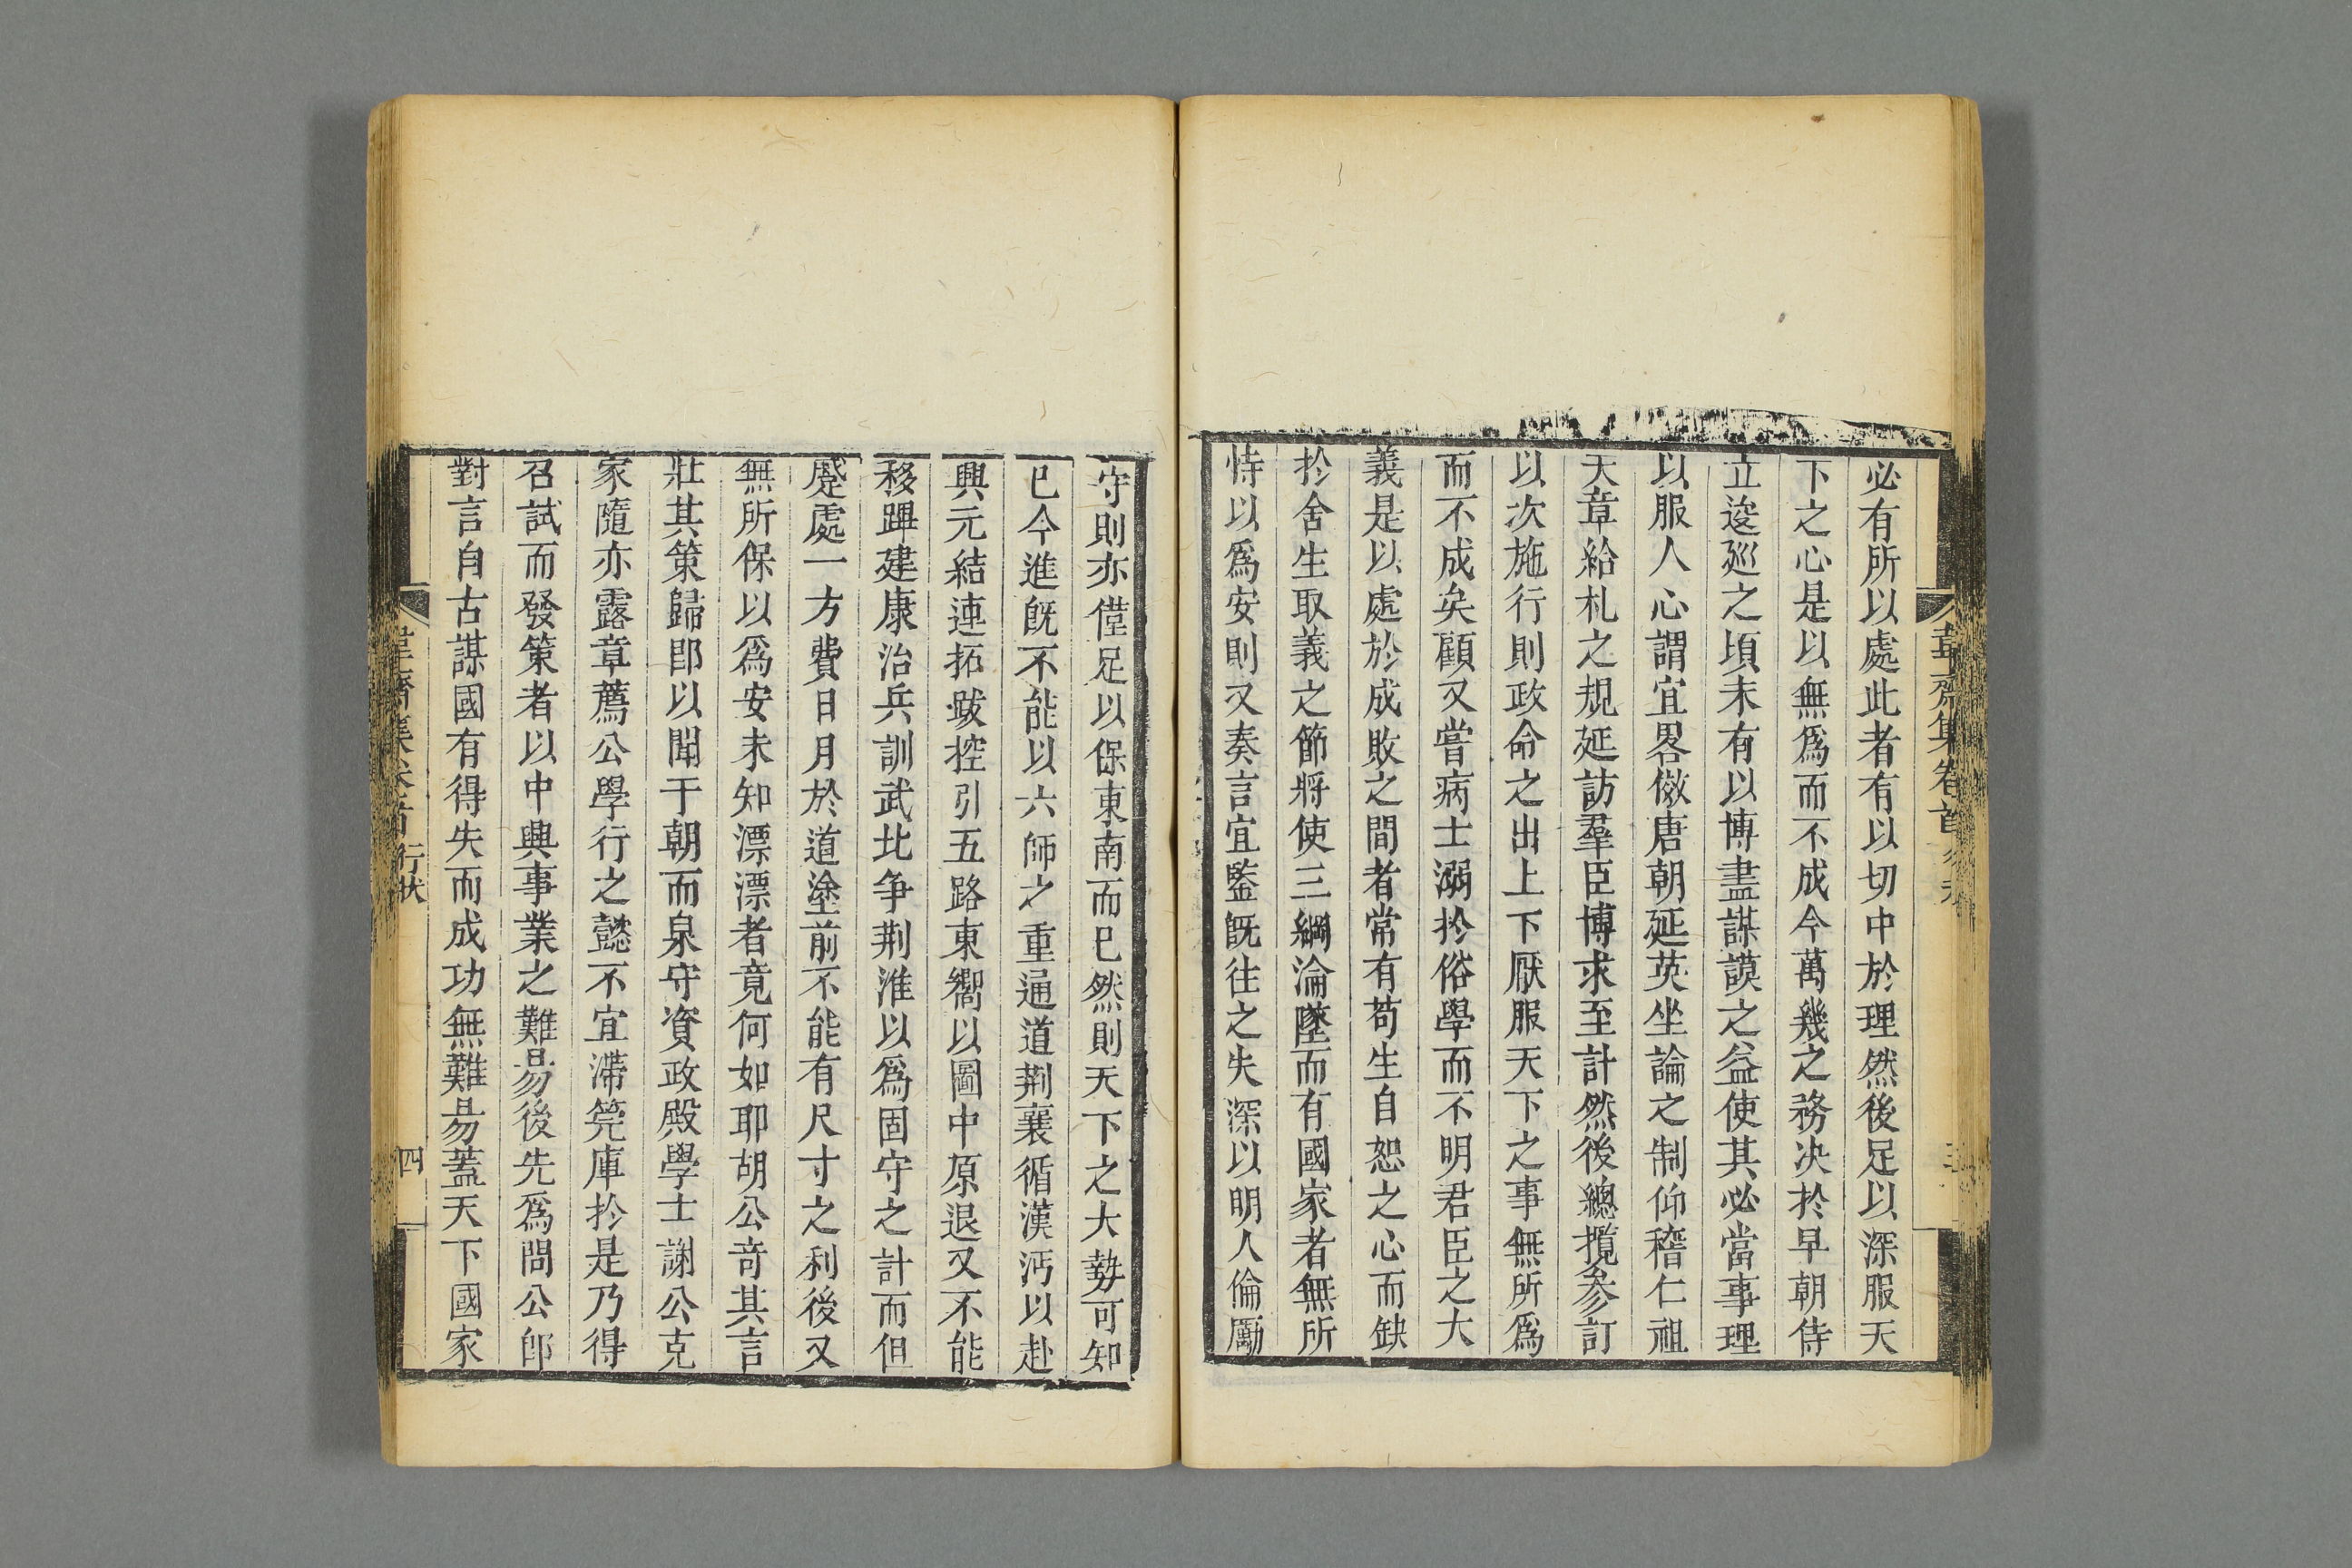 韋齋集卷首
必有所以處此者有以切中於理然後足以深服天
下之心是以無爲而不成今萬幾之務决扵早朝侍
立逡廵之頃未有以博盡謀謨之益使其必當事理
以服人心謂宜畧倣唐朝延英坐論之制仰稽仁祖
天章給札之規延訪羣臣博求至計然後總攬參訂
以次施行則政命之出上下厭服天下之事無所爲
而不成矣顧又嘗病士溺扵俗學而不明君臣之大
義是以處於成敗之間者常有苟生自恕之心而缺
扵舍生取義之節將使三綱淪墜而有國家者無所
恃以爲安則又奏言宜鍳旣往之失深以明人倫勵
守則亦僅足以保東南而已然則天下之大勢可知
已今進旣不能以六師之重通道荆襄循漢沔以赴
興元結連拓跋控引五路東嚮以圖中原退又不能
移蹕建康治兵訓武北争荆淮以爲固守之計而但
蹙處一方費日月於道塗前不能有尺寸之利後又
無所保以爲安未知漂漂者竟何如耶胡公竒其言
壯其策歸卽以聞于朝而泉守資政殿學士謝公克
家隨亦露章薦公學行之懿不宜滯筦庫扵是乃得
召試而發策者以中興事業之難易後先爲問公卽
對言自古謀國有得失而成功無難易蓋天下國家
韋齋集卷首 行狀
四